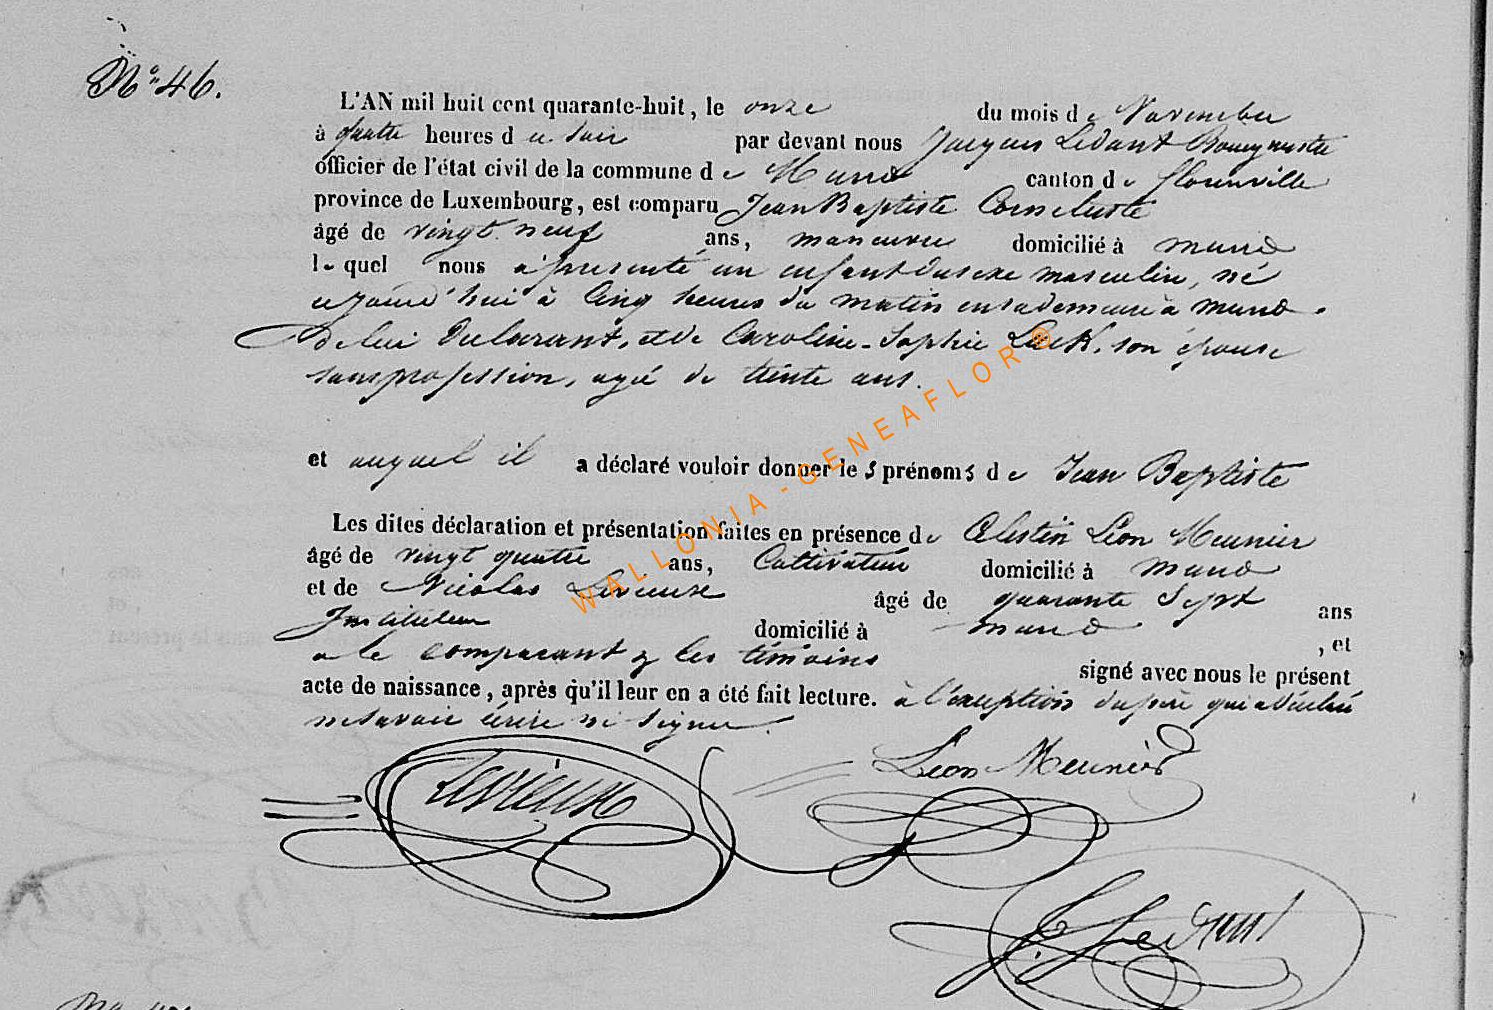 No 46.
L'AN mil huit cent quarante-huit, le onze du mois de Novembre
à quatre heures du soir par devant nous Jacques Ledant Bourgmestre
officier de l'état civil de la commune de Muno canton de florenville
province de Luxembourg, est comparu Jean Baptiste
âgé de vingt neuf ans, manœuvre domicilié à muno
lequel nous a présenté un enfant du sexe masculin, né
cejourd'hui à Cinq heures du matin en sa demeure à muno.
de lui Déclarant, et de Caroline-Sophie son épouse
sans profession, agée de trente ans.
et auquel il a déclaré vouloir donner les prénoms de Jean Baptiste
Les dites déclaration et présentation faites en présence de Célestin Léon Meunier
âgé de vingt quatre ans, Cultivateur domicilié à muno
et de Nicolas Levieux âgé de quarante Sept ans
Instituteur domicilié à muno , et
a le comparant & les témoins signé avec nous le présent
acte de naissance, après qu'il leur en a été fait lecture. à l'exception du père qui a déclaré
ne savoir écrire ni signer.
Levieux
Léon Meunier
J. Ledant
WALLONIA-GENEAFLOR®